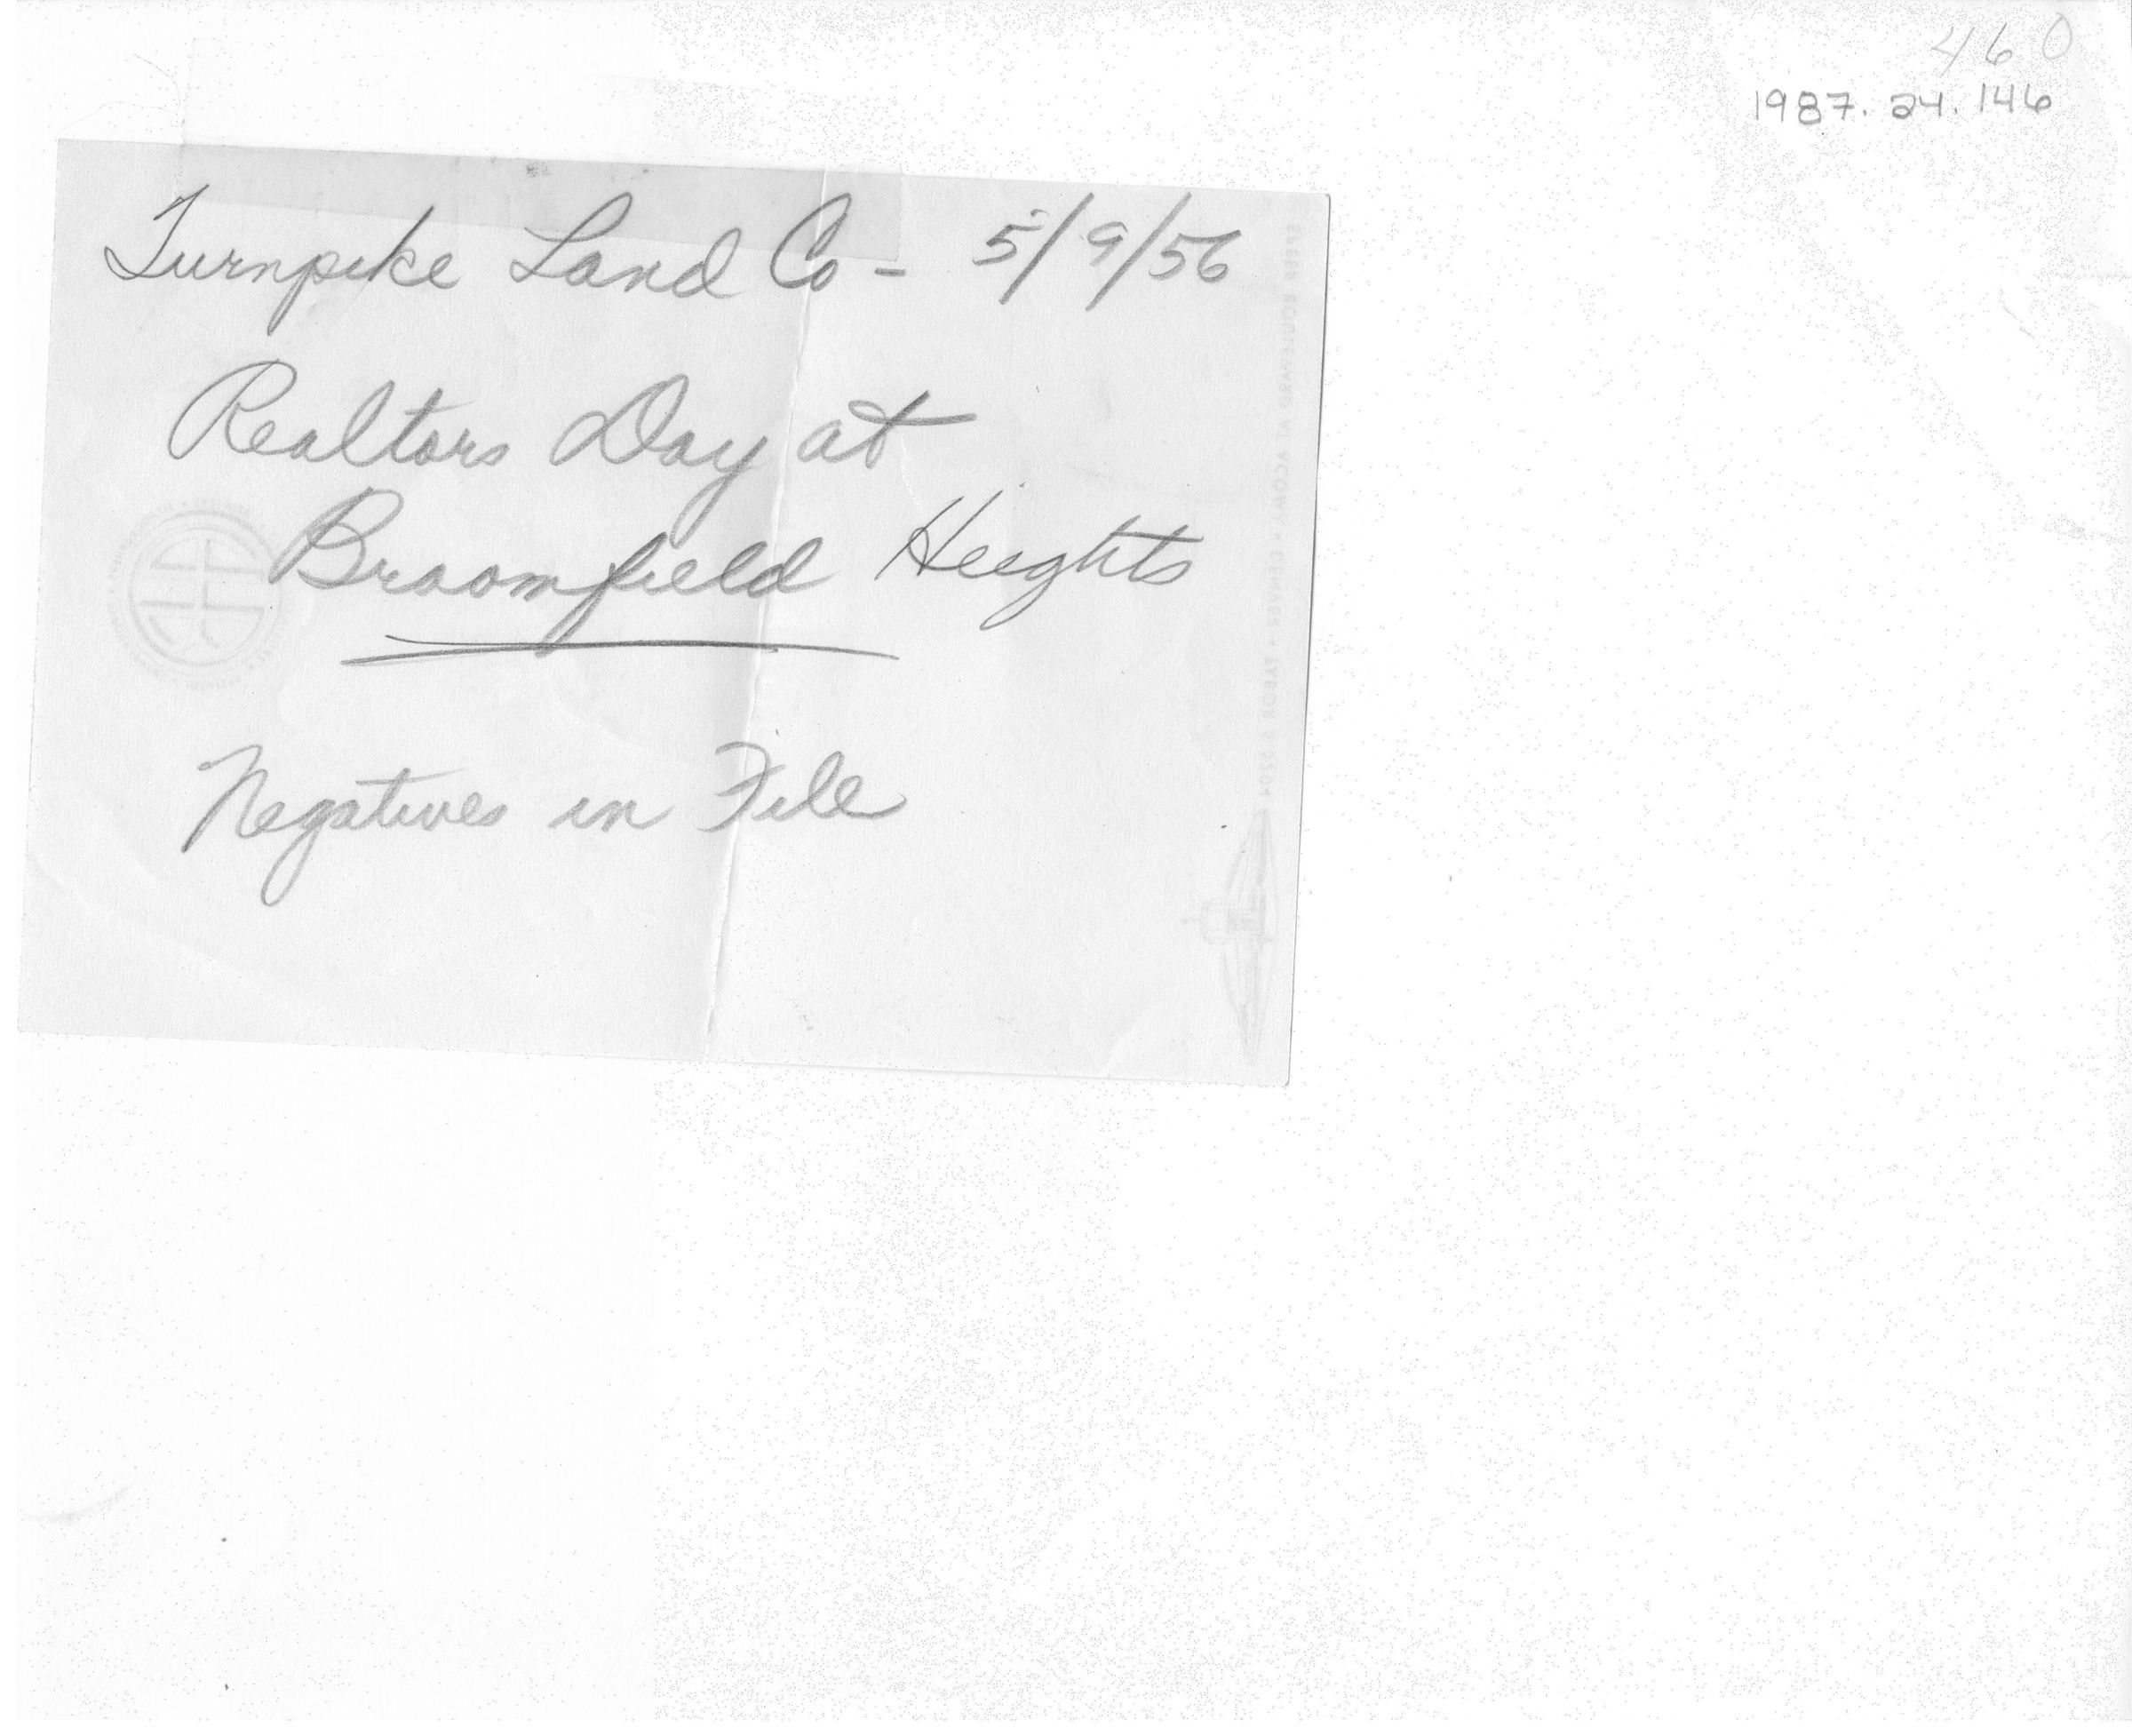 460
1987.24.146
Turnpike Land Co - 5/9/56
Realtors Day at
Broomfield Heights
Negatives in File